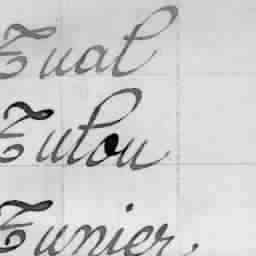 Tual
Tulou
Tunier